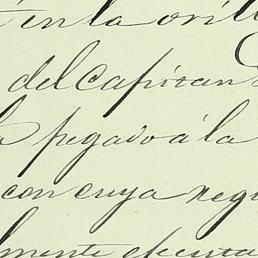 en la orill
del capitan
pegado á la
con cuya regu
mente ejecuta